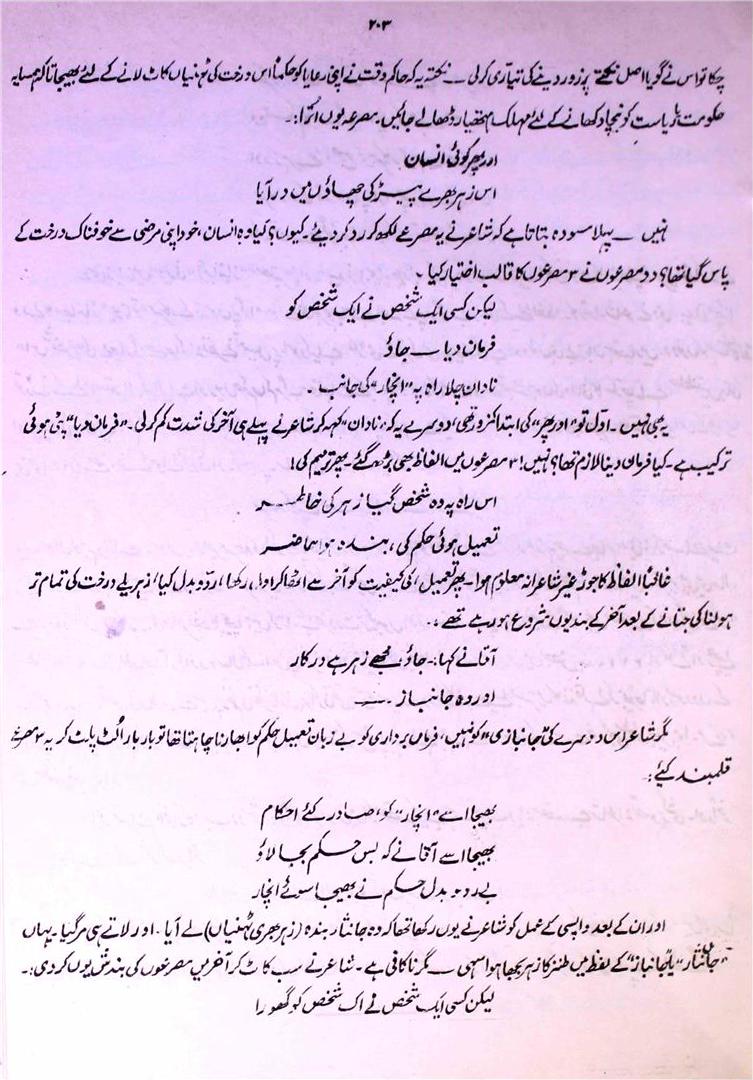 ۲۰۳
چکا تو اس نے گویا اصل نکتے پر زور دینے کی تیاری کرلی — نکتہ یہ کہ حاکمِ وقت نے اپنی رعایا کو حکماً اس درخت کی ٹہنیاں کاٹ لانے کے لئے بھیجا تاکہ ہمسایہ
حکومت یا ریاست کو نیچا دکھانے کے لئے مہلک ہتھیار ڈھالے جائیں۔ مصرعہ یوں اترا:۔
اور پھر کوئی انسان
اس زہر بھرے پیڑ کی چھاؤں میں در آیا
نہیں — پہلا مسودہ بتاتا ہے کہ شاعر نے یہ مصرعے لکھ کر رد کردیئے۔ کیوں؟ کیا وہ انسان، خود اپنی مرضی سے خوفناک درخت کے
پاس گیا تھا؟ دو مصرعوں نے ۳ مصرعوں کا قالب اختیار کیا
لیکن کسی ایک شخص نے ایک شخص کو
فرمان دیا — جاؤ
نادان چلا راہ پہ "انچار" کی جانب۔
یہ بھی نہیں۔ اول تو "اور پھر" کی ابتدا کمزور تھی، دوسرے یہ کہ، نادان "کہہ کر شاعر نے پہلے ہی آخر کی شدت کم کرلی۔ "فرمان دیا" پٹی ہوئی
ترکیب ہے۔ کیا فرمان دینا لازم تھا؟ نہیں! ۳ مصرعوں میں الفاظ بھی بڑھ گئے۔ پھر ترمیم کی!
اس راہ پہ وہ شخص گیا زہر کی خاطر
تعمیل ہوئی حکم کی، بندہ ہوا حاضر
غالباً الفاظ کا جوڑ غیر شاعرانہ معلوم ہوا۔ پھر تعمیل، کی کیفیت کو آخر سے اٹھا کر اول رکھا، ردّ و بدل کیا، زہریلے درخت کی تمام تر
ہولناکی جتانے کے بعد آخر کے بند یوں شروع ہو رہے تھے۔
آقا نے کہا:۔ جاؤ مجھے زہر ہے درکار
اور وہ جانباز ۔——
مگر شاعر اس دوسرے کی "جانبازی" کو نہیں، فرماں برداری کو بے زبان تعمیل حکم کو ابھارنا چاہتا تھا تو بار بار الٹ پلٹ کر یہ ۳ مصرعے
قلمبند کیئے:۔
بھیجا اسے "انچار" کو، صادر کئے احکام
بھیجا اسے آقا نے کہ بس حکم بجا لاؤ
بے رد و بدل حکم نے بھیجا سوئے انچار
اور ان کے بعد واپسی کے عمل کو شاعر نے یوں رکھا تھا کہ وہ جانثار بندہ (زہر بھری ٹہنیاں) لے آیا۔ اور لاتے ہی مرگیا۔ یہاں
"جاں نثار" یا "جانباز" کے لفظ میں طنز کا زہر بجھا ہوا سہی — مگر ناکافی ہے۔ شاعر نے سب کاٹ کر آخر میں مصرعوں کی بندش یوں کردی:۔
لیکن کسی ایک شخص نے اک شخص کو گھورا